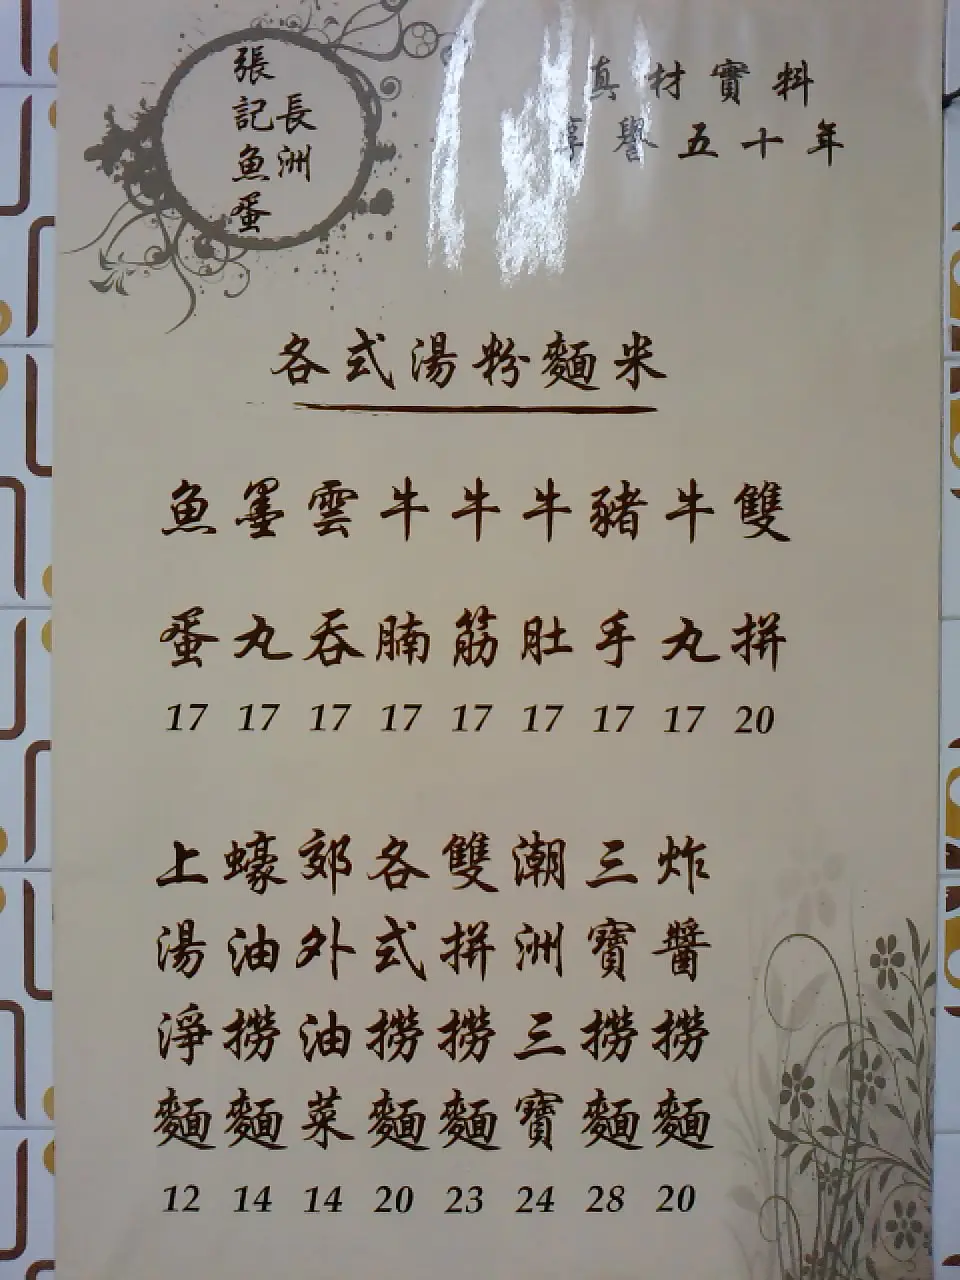 長洲
張記魚蛋
真材實料
享譽五十年
各式湯粉麵米
魚蛋 17
墨丸 17
雲吞 17
牛腩 17
牛筋 17
牛肚 17
豬手 17
牛丸 17
雙拼 20
上湯淨麵 12
蠔油撈麵 14
郊外油菜 14
各式撈麵 20
雙拼撈麵 23
潮洲三寶 24
三寶撈麵 28
炸醬撈麵 20